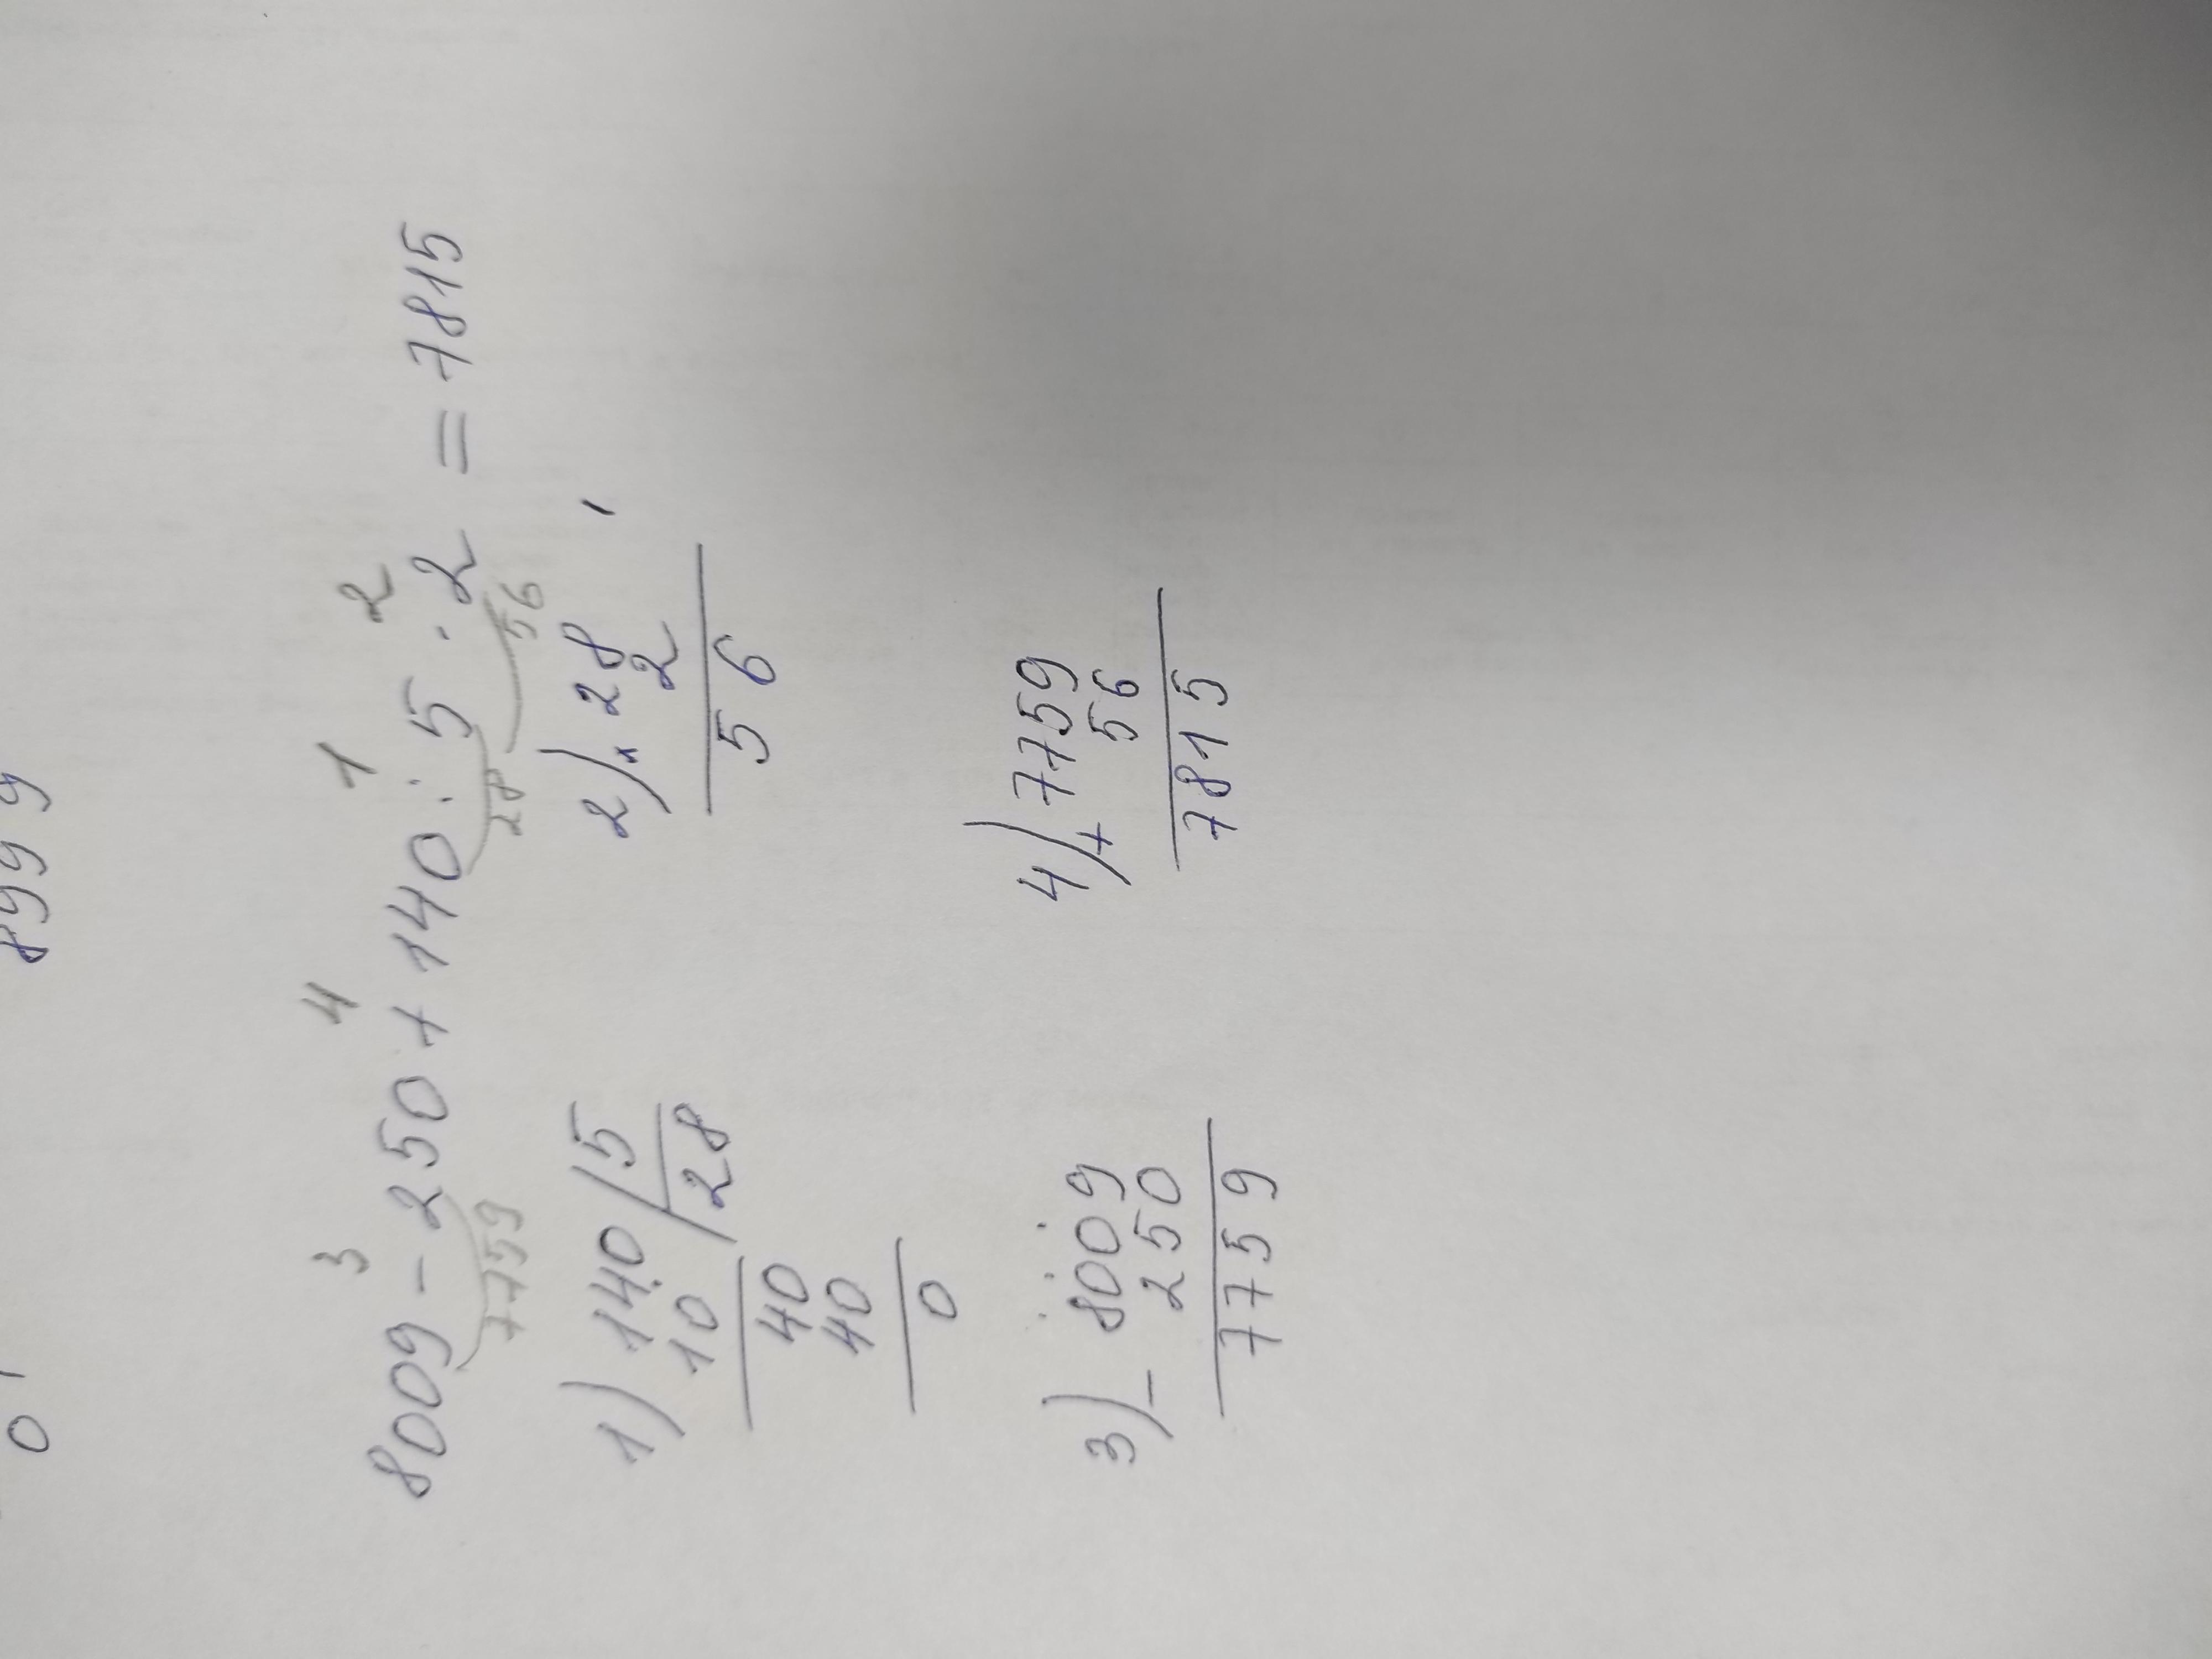 8999
0
3 4 1 2
8009 - 250 + 140 : 5 · 2 = 7815
7759 28 56
1) 140 | 5 2) × 28
10 28 2
40 56
40
0
3) - 8009 4) + 7759
250 56
7759 7815